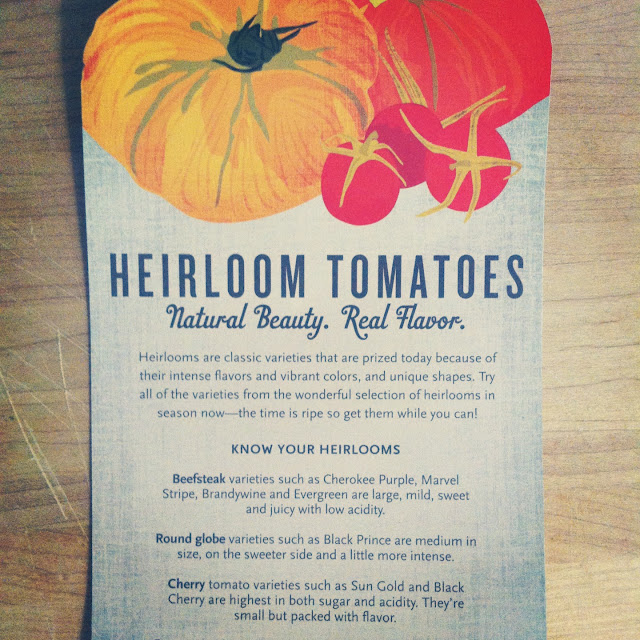 HEIRLOOM TOMATOES
Natural Beauty. Real Flavor.
Heirlooms are classic varieties that are prized today because of
their intense flavors and vibrant colors, and unique shapes. Try
all of the varieties from the wonderful selection of heirlooms in
season now—the time is ripe so get them while you can!
KNOW YOUR HEIRLOOMS
Beefsteak varieties such as Cherokee Purple, Marvel
Stripe, Brandywine and Evergreen are large, mild, sweet
and juicy with low acidity.
Round globe varieties such as Black Prince are medium in
size, on the sweeter side and a little more intense.
Cherry tomato varieties such as Sun Gold and Black
Cherry are highest in both sugar and acidity. They're
small but packed with flavor.